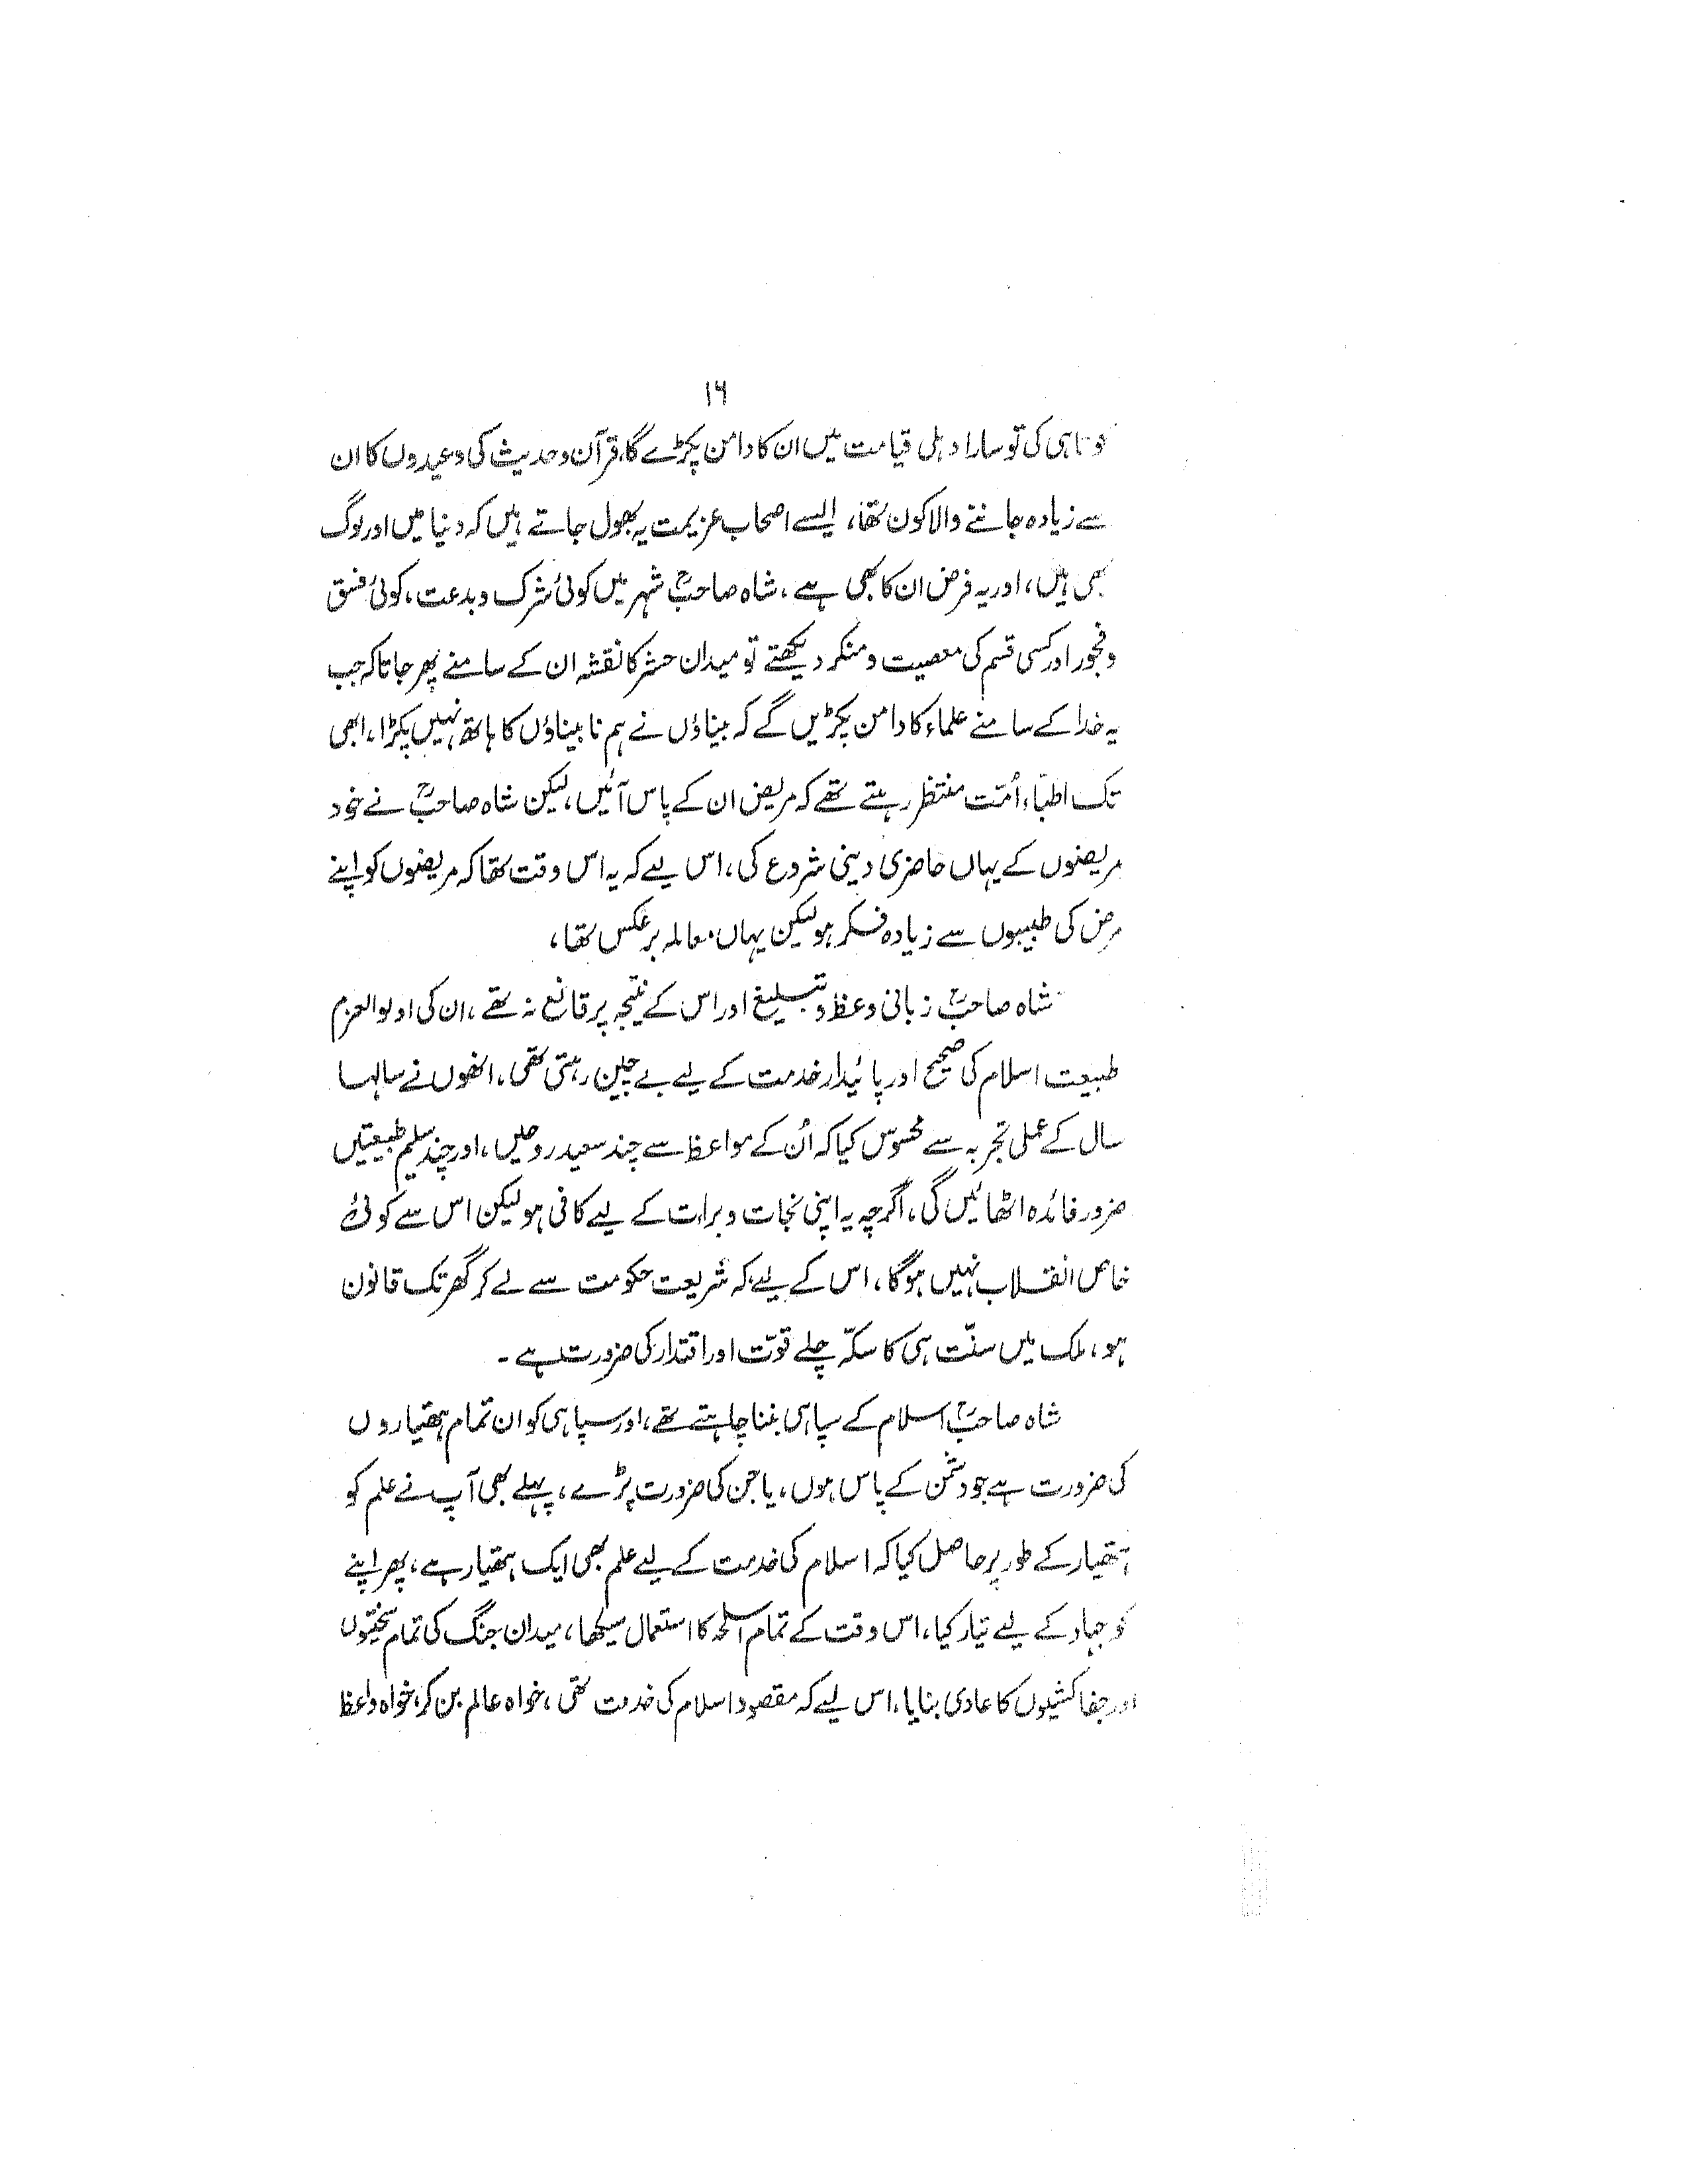 ۱۶
کوتاہی کی تو سارا دہلی قیامت میں ان کا دامن پکڑے گا، قرآن و حدیث کی وعیدوں کا ان
سے زیادہ جاننے والا کون تھا، ایسے اصحاب عزیمت یہ بھول جاتے ہیں کہ دنیا میں اور لوگ
بھی ہیں، اور یہ فرض ان کا بھی ہے، شاہ صاحبؒ شہر میں کوئی شرک و بدعت، کوئی فسق
و فجور اور کسی قسم کی معصیت و منکر دیکھتے تو میدان حشر کا نقشہ ان کے سامنے پھر جاتا کہ جب
یہ خدا کے سامنے علماء کا دامن پکڑیں گے کہ بیناؤں نے ہم نابیناؤں کا ہاتھ نہیں پکڑا، ابھی
تک اطبّاء اُمّت منتظر رہتے تھے کہ مریض ان کے پاس آئیں، لیکن شاہ صاحبؒ نے خود
مریضوں کے یہاں حاضری دینی شروع کی، اس لیے کہ یہ اس وقت تھا کہ مریضوں کو اپنے
مرض کی طبیبوں سے زیادہ فکر ہو لیکن یہاں معاملہ برعکس تھا،
شاہ صاحبؒ زبانی وعظ و تبلیغ اور اس کے نتیجہ پر قانع نہ تھے، ان کی اولوالعزم
طبیعت اسلام کی صحیح اور پائیدار خدمت کے لیے بے چین رہتی تھی، انھوں نے سالہا
سال کے عملی تجربہ سے محسوس کیا کہ اُن کے مواعظ سے چند سعید روحیں، اور چند سلیم طبیعتیں
ضرور فائدہ اٹھائیں گی، اگرچہ یہ اپنی نجات و برات کے لیے کافی ہو لیکن اس سے کوئی
خاص انقلاب نہیں ہوگا، اس کے لیے، کہ شریعت حکومت سے لے کر گھر تک قانون
ہو، ملک میں سنّت ہی کا سکہّ چلے قوّت اور اقتدار کی ضرورت ہے ۔
شاہ صاحبؒ اسلام کے سپاہی بننا چاہتے تھے، اور سپاہی کو ان تمام ہتھیاروں
کی ضرورت ہے جو دشمن کے پاس ہوں، یا جن کی ضرورت پڑے، پہلے بھی آپ نے علم کو
ہتھیار کے طور پر حاصل کیا کہ اسلام کی خدمت کے لیے علم بھی ایک ہتھیار ہے، پھر اپنے
کو جہاد کے لیے تیار کیا، اس وقت کے تمام اسلحہ کا استعمال سیکھا، میدان جنگ کی تمام سختیوں
اور جفاکشیوں کا عادی بنایا، اس لیے کہ مقصود اسلام کی خدمت تھی، خواہ عالم بن کر، خواہ واعظ